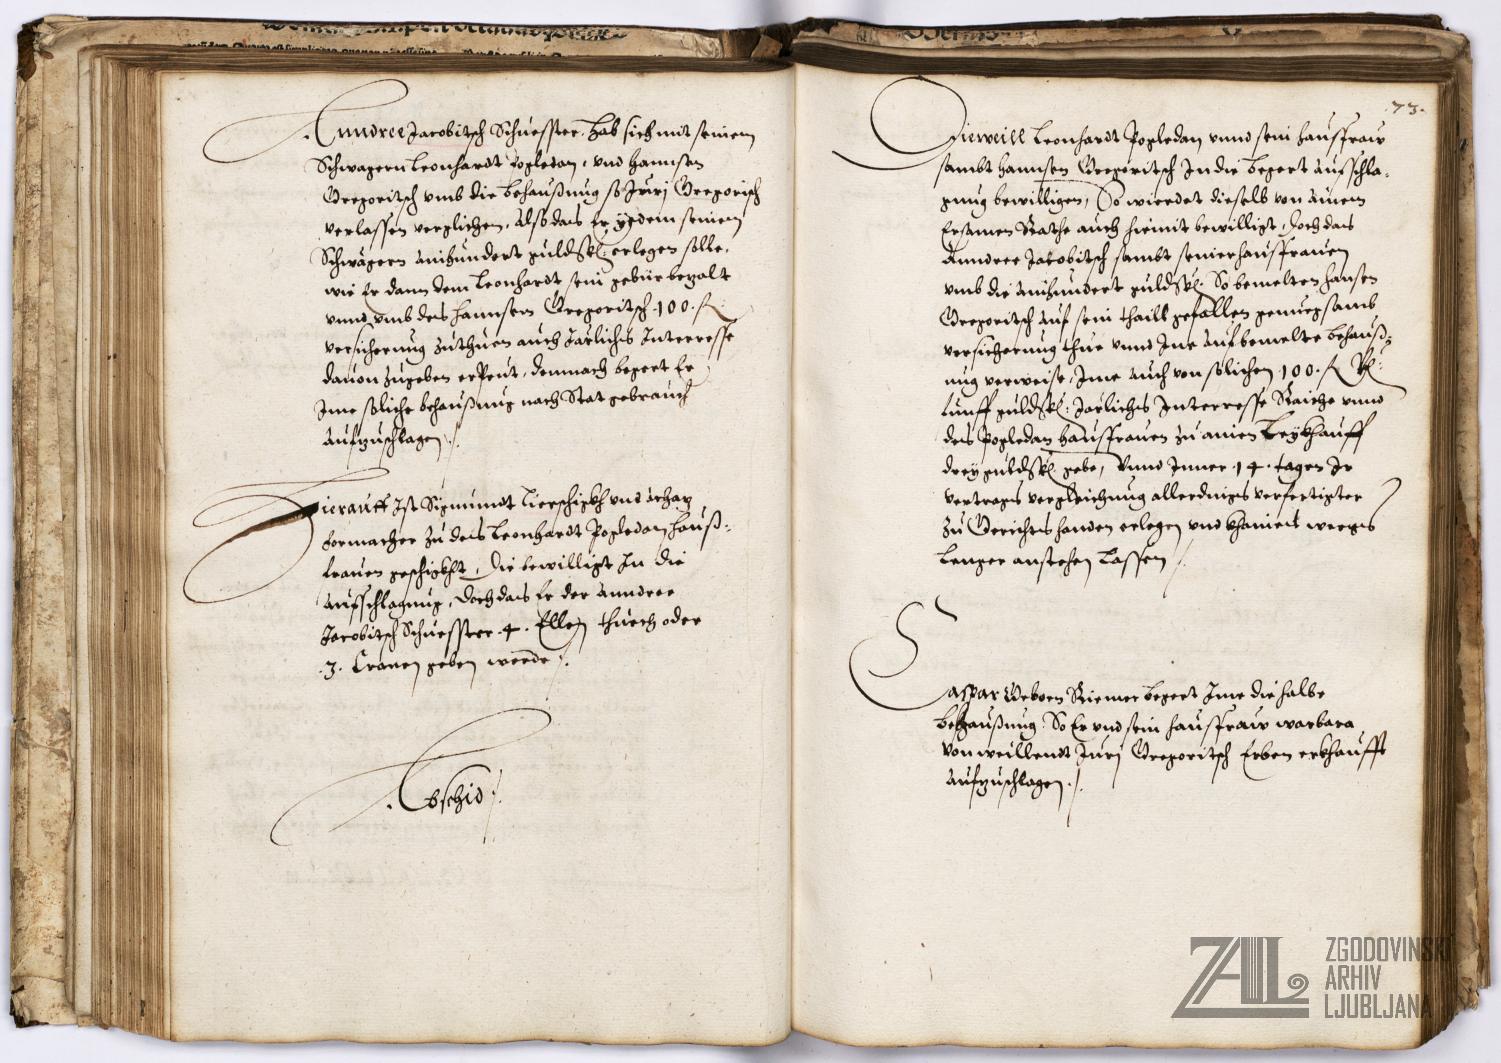 Anndree Jacobitsch Schuesster, hab sich mit seinem
Schwagern Leonhardt Pogledan, vnd Hannsen
Gregoritsch vmb die behaußung so Jurj Gregoritsch
verlassen verglichen, Also das Er yedem seinem
Schwagern ainhundert guld: erlegen solle,
wie Er dann dem Leonhardt sein gebür bezalt
vnnd vmb des Hannsen Gregoritsch 100 fl:
versicherung zuthuen auch Järlichs Interresse
dauon zugeben erpeut, demnach begert Er
Ime soliche behaußung nach Stat gebrauch
aufzuschlagen ./.
Hierauff Ist Sigmundt vnd
zu des Leonhardt Pogledan hauß=
frauen geschickht, Die bewilligt In die
aufschlagung, Doch das Er der Anndree
Jacobitsch Schuesster .4. Ellen thuech oder
.3. Cronen geben werde ./.
Abschid ./.
73.
Dieweill Leonhardt Pogledan vnnd sein haußfraw
sambt Hannsen Gregoritsch In die begert aufschla=
gung bewilligen, So wierdet dieselb von ainem
Ersamen Rathe auch hiemit bewilligt, doch das
Anndree Jacobitsch sambt seiner haußfrauen
vmb die ainhundert guld: So bemelten Hansen
Gregoritsch auf sein thaill gefallen genuegsamb
versicherung thue vnnd Ine auf bemelte behauß=
ung verweise, Ime auch von solichen 100 fl
funff guld: Järliches Interresse Raiche vnnd
des Pogledan haußfrauen zu ainen Leykhauff
drey guld: gebe, Vnnd Inner .14. tagen Ir
vertrags vergleichung allerdings verfertigter
zu Gerichtshanden erlegen vnd khaines weegs
lenger anstehen lassen ./.
Caspar Riemer begert Ime die halbe
behaußung So Er vnd sein haußfraw warbara
von weillendt Jurj Gregoritsch Erben erkhaufft
aufzuschlagen ./.
ZAL
ZGODOVINSKI
ARHIV
LJUBLJANA